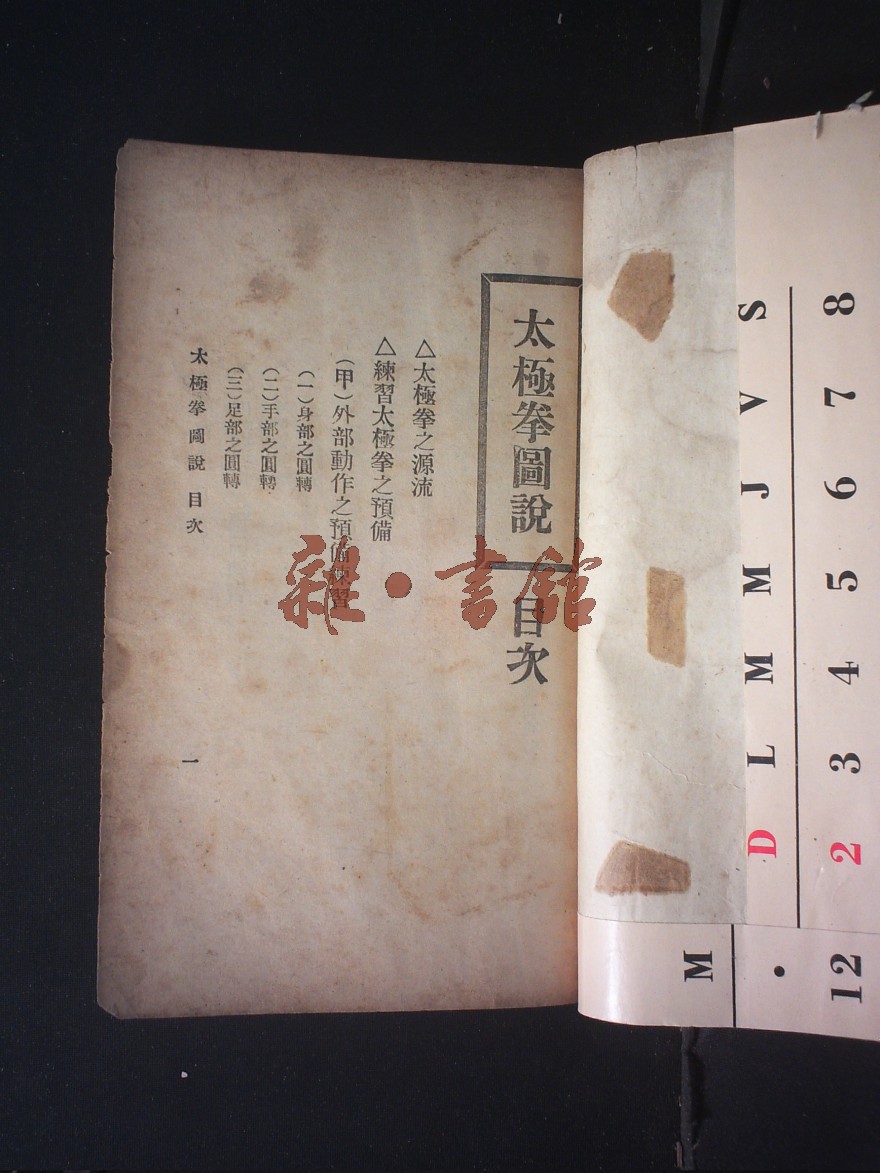 太極拳圖說 目次
△太極拳之源流
△練習太極拳之預備
（甲）外部動作之預備練習
（一）身部之圓轉
（二）手部之圓轉
（三）足部之圓轉
太極拳圖說 目次
一
雜·書館
S 8
V 7
J 6
M 5
M 4
L 3
D 2
M • 12